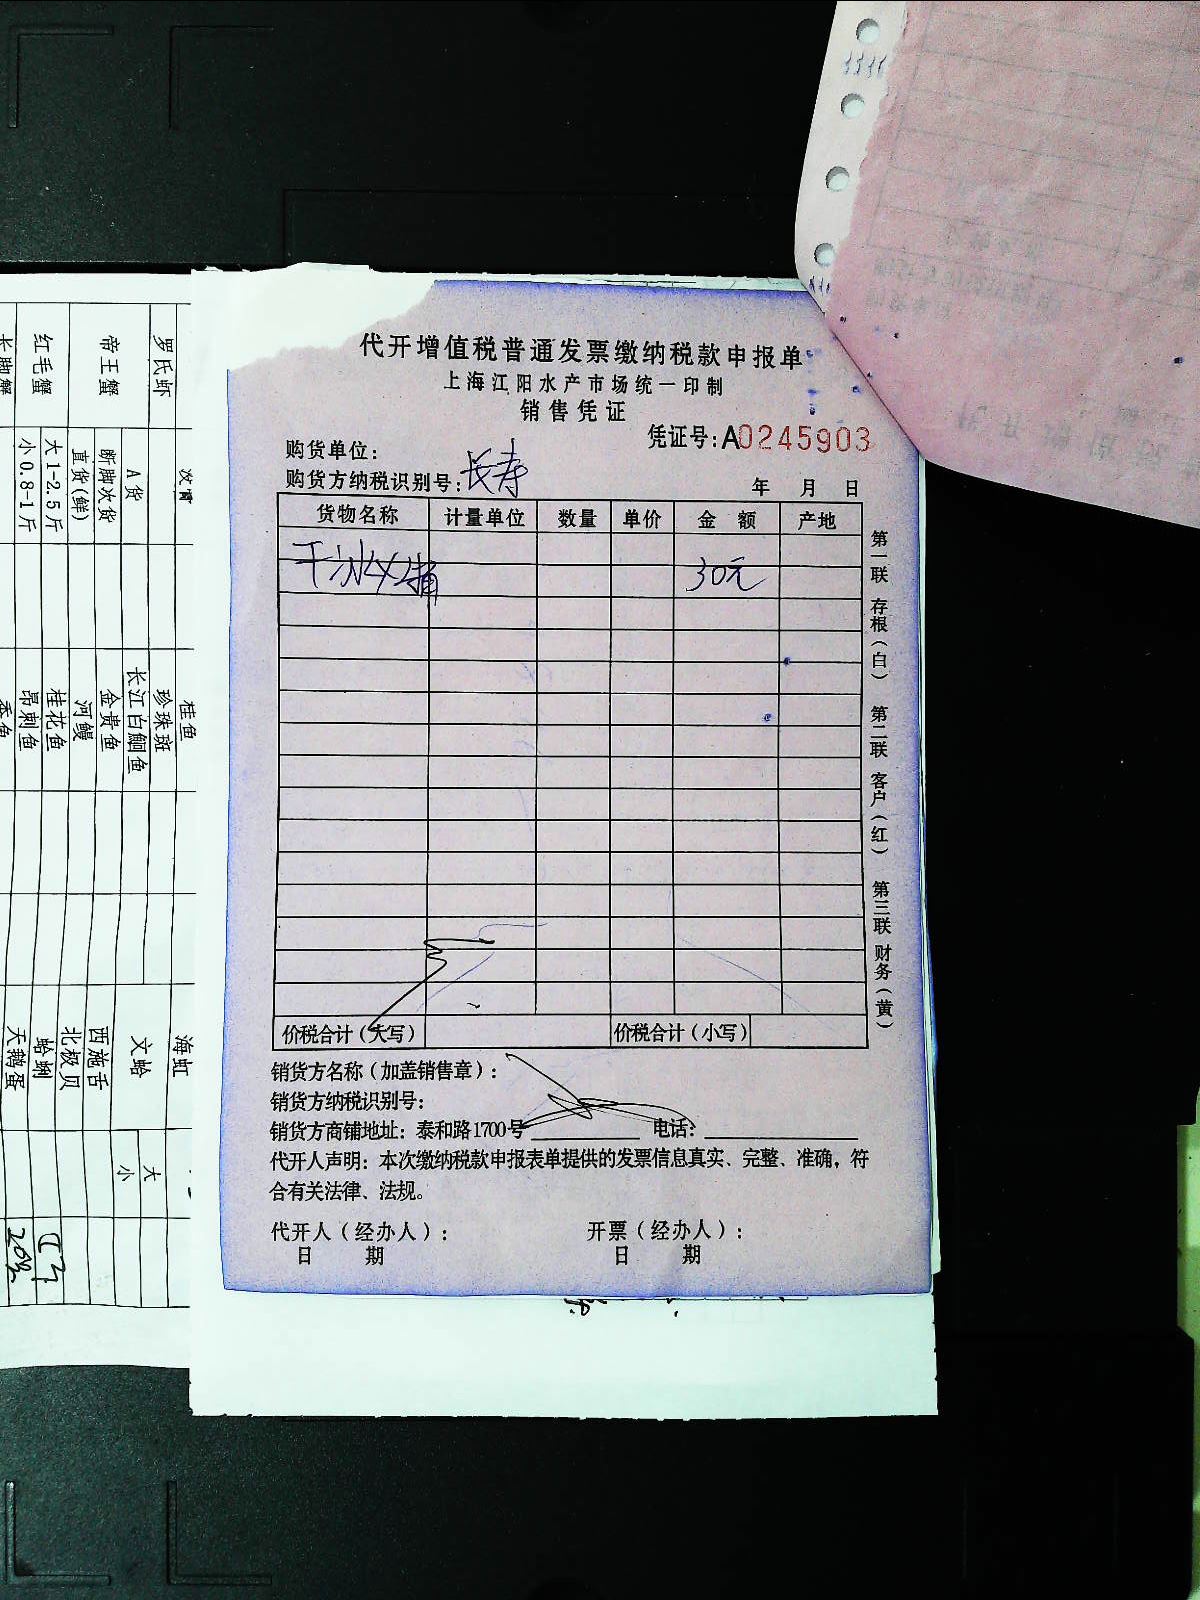 代开增值税普通发票缴纳税款申报单
上海江阳水产市场统一印制
销售凭证
凭证号:A0245903
购货单位:
购货方纳税识别号:长寿
年 月 日
货物名称 计量单位 数量 单价 金 额 产地
干冰 30元
价税合计(大写) 价税合计(小写)
销货方名称(加盖销售章):
销货方纳税识别号:
销货方商铺地址: 泰和路1700号 电话:
代开人声明: 本次缴纳税款申报表单提供的发票信息真实、完整、准确, 符
合有关法律、法规。
代开人(经办人): 开票(经办人):
日 期 日 期
第一联 存根(白) 第二联 客户(红) 第三联 财务(黄)
罗氏虾
帝王蟹
红毛蟹
长脚蟹
A货
断脚次货
直货(鲜)
大1-2.5斤
小0.8-1斤
桂鱼
珍珠斑
长江白鮰鱼
金贵鱼
河鳗
桂花鱼
昂刺鱼
香鱼
海虹
文蛤
西施舌
北极贝
蛤蜊
天鹅蛋
大
小